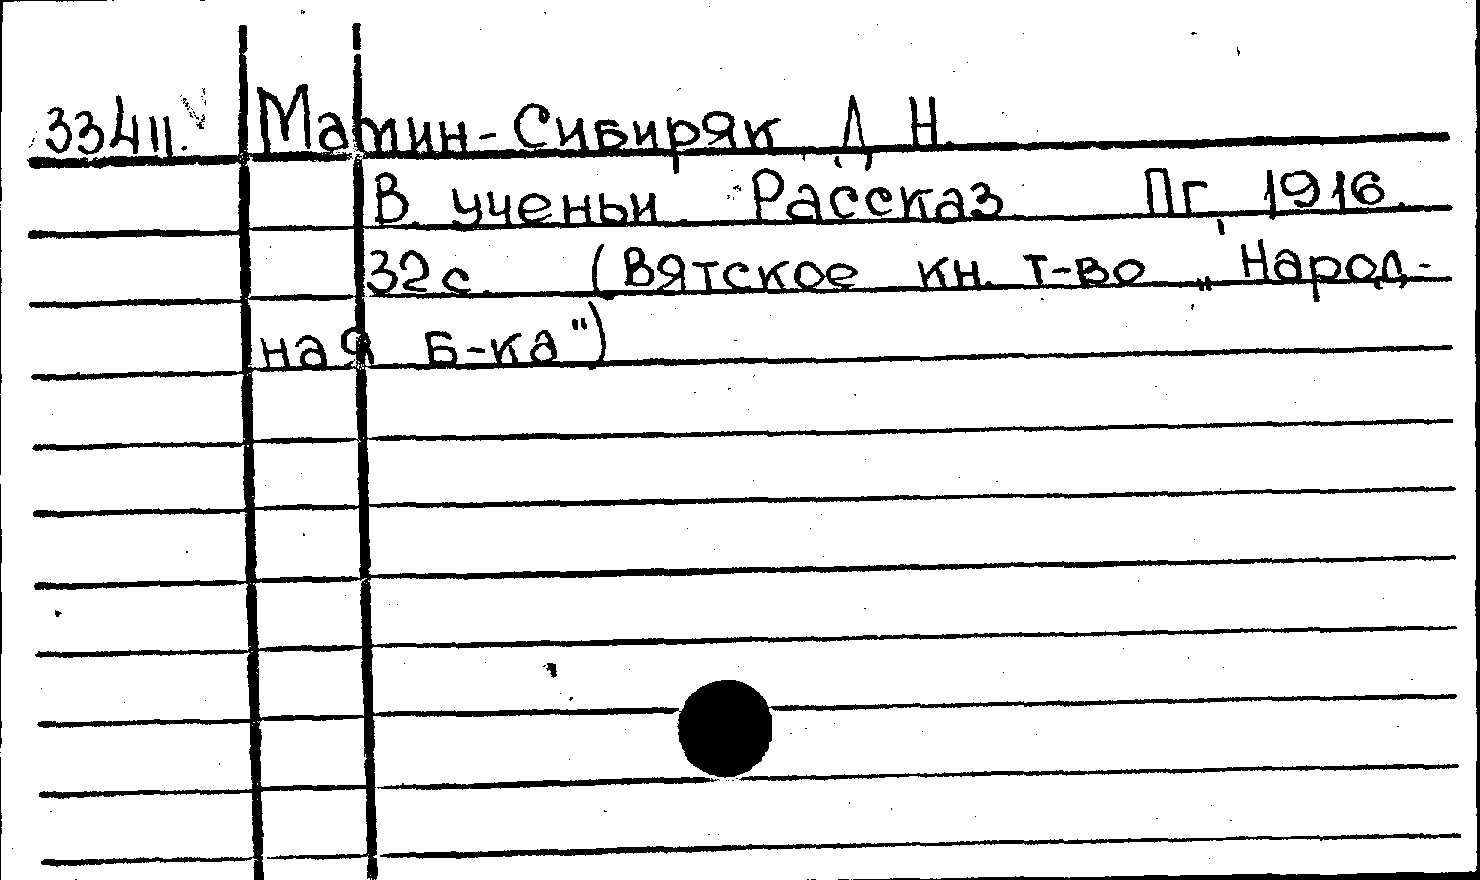 33411. Мамин-Сибиряк Д. Н.
В ученьи. Рассказ Пг, 1916.
32с. (Вятское кн. т-во „Народ-
ная б-ка")